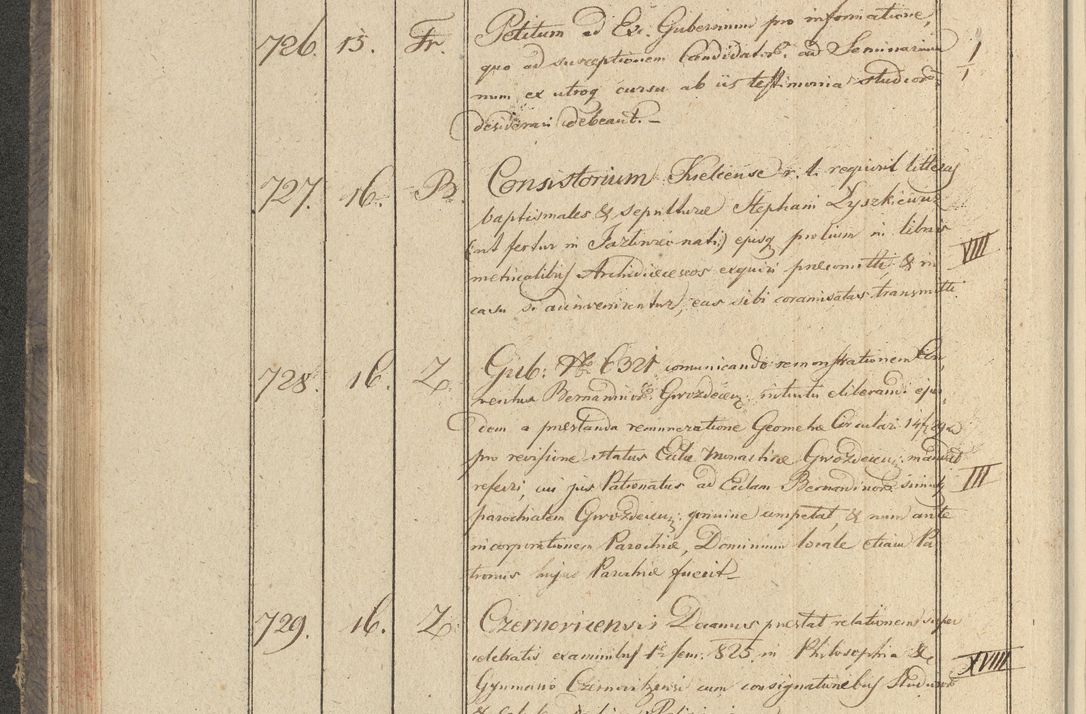 726. 15. Fr. Petitum ad Ex. Gubernium pro informatione,
quo ad susceptionem Candidator. ad Seminarium
num ex utroq cursu ab iis testimonia studior
desiderari debeant. –
I
727. 16. B. Consistorium Kielcense r. l. requirit litteras
baptismales & sepulturae Stephani Lyszkiewicz
(ut fertur in nati) ejusq prolium in libris
metricalibus Archidiaeceseos exquiri & in
casu si adinvenirentur, eas sibi coramisatas transmitti.
VIII
728. 16. Z. Gub: No 6321 comunicando remonstrationem
ventus Bernardinor: Gwozdecen: intuitu eliberandi ejus
dem a praestanda remuneratione Geometrae Circulari
pro revisione status Eccl̄ae Monastirae Gwozdecen: mandat
referri, cui jus Patronatus ad Eccl̄am Bernardinor. simul
parochialem Gwozdecen: genuine competat, & num ante
incorporationem Parochiae, Dominium locale etiam Pa
tronus hujus Parochiae fuerit –
III
729. 16. Z. Czernovicensis Decanus praestat relationem super
celebratis examinibus 1mi sem. 825 in Philosophia &
Gymnasio Czernovicensi cum consignationibus Studiosor
XVIII